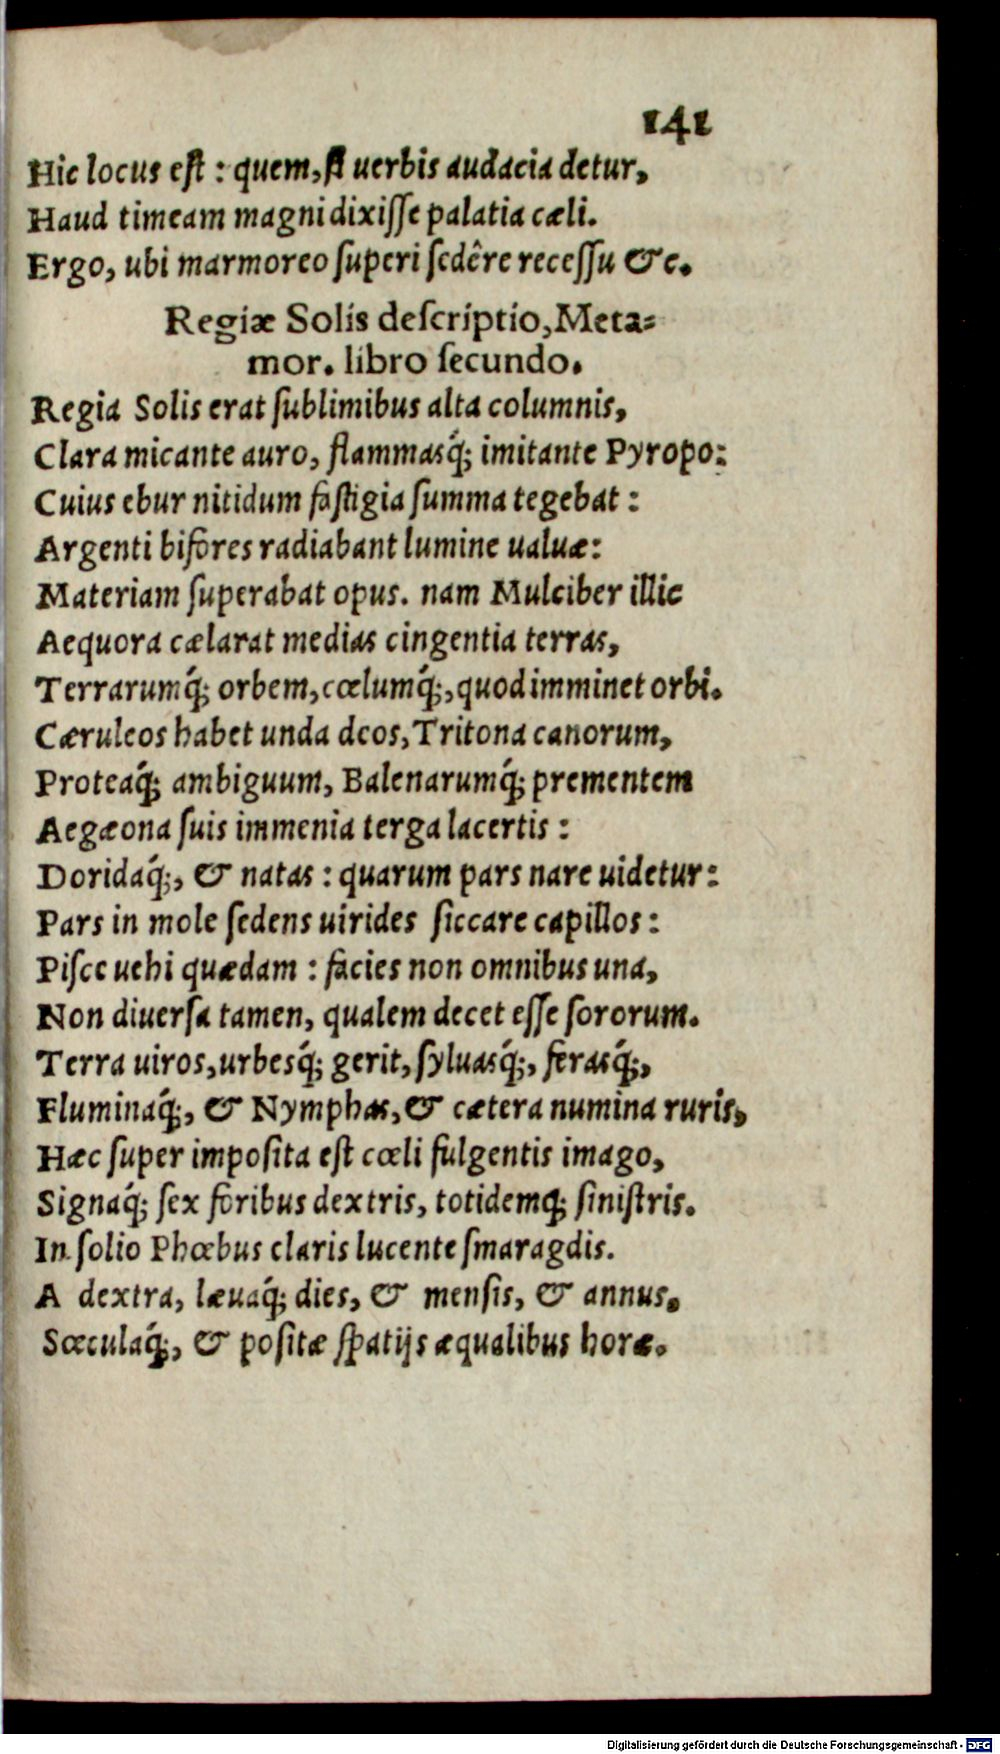 141
Hic locus eſt : quem, ſi uerbis audacia detur,
Haud timeam magni dixiſſe palatia cæli.
Ergo, ubi marmoreo ſuperi ſedêre receſſu &c.
Regiæ Solis deſcriptio, Meta⸗
mor. libro ſecundo.
Regia Solis erat ſublimibus alta columnis,
Clara micante auro, flammasq́; imitante Pyropo:
Cuius ebur nitidum faſtigia ſumma tegebat :
Argenti bifores radiabant lumine ualuæ:
Materiam ſuperabat opus. nam Mulciber illic
Aequora cælarat medias cingentia terras,
Terrarumq́; orbem, cœlumq́;, quod imminet orbi.
Cæruleos habet unda deos, Tritona canorum,
Proteaq́; ambiguum, Balenarumq́; prementem
Aegæona ſuis immenia terga lacertis :
Doridaq́;, & natas : quarum pars nare uidetur:
Pars in mole ſedens uirides ſiccare capillos :
Piſce uehi quædam : facies non omnibus una,
Non diuerſa tamen, qualem decet eſſe ſororum.
Terra uiros, urbesq́; gerit, ſyluasq́;, ferasq́;,
Fluminaq́;, & Nymphas, & cætera numina ruris,
Hæc ſuper impoſita eſt cœli fulgentis imago,
Signaq́; ſex foribus dextris, totidemq́; ſiniſtris.
In ſolio Phœbus claris lucente ſmaragdis.
A dextra, læuaq́; dies, & menſis, & annus.
Sœculaq́;, & poſitæ ſpatijs æqualibus horæ.
Digitalisierung gefördert durch die Deutsche Forschungsgemeinschaft - DFG